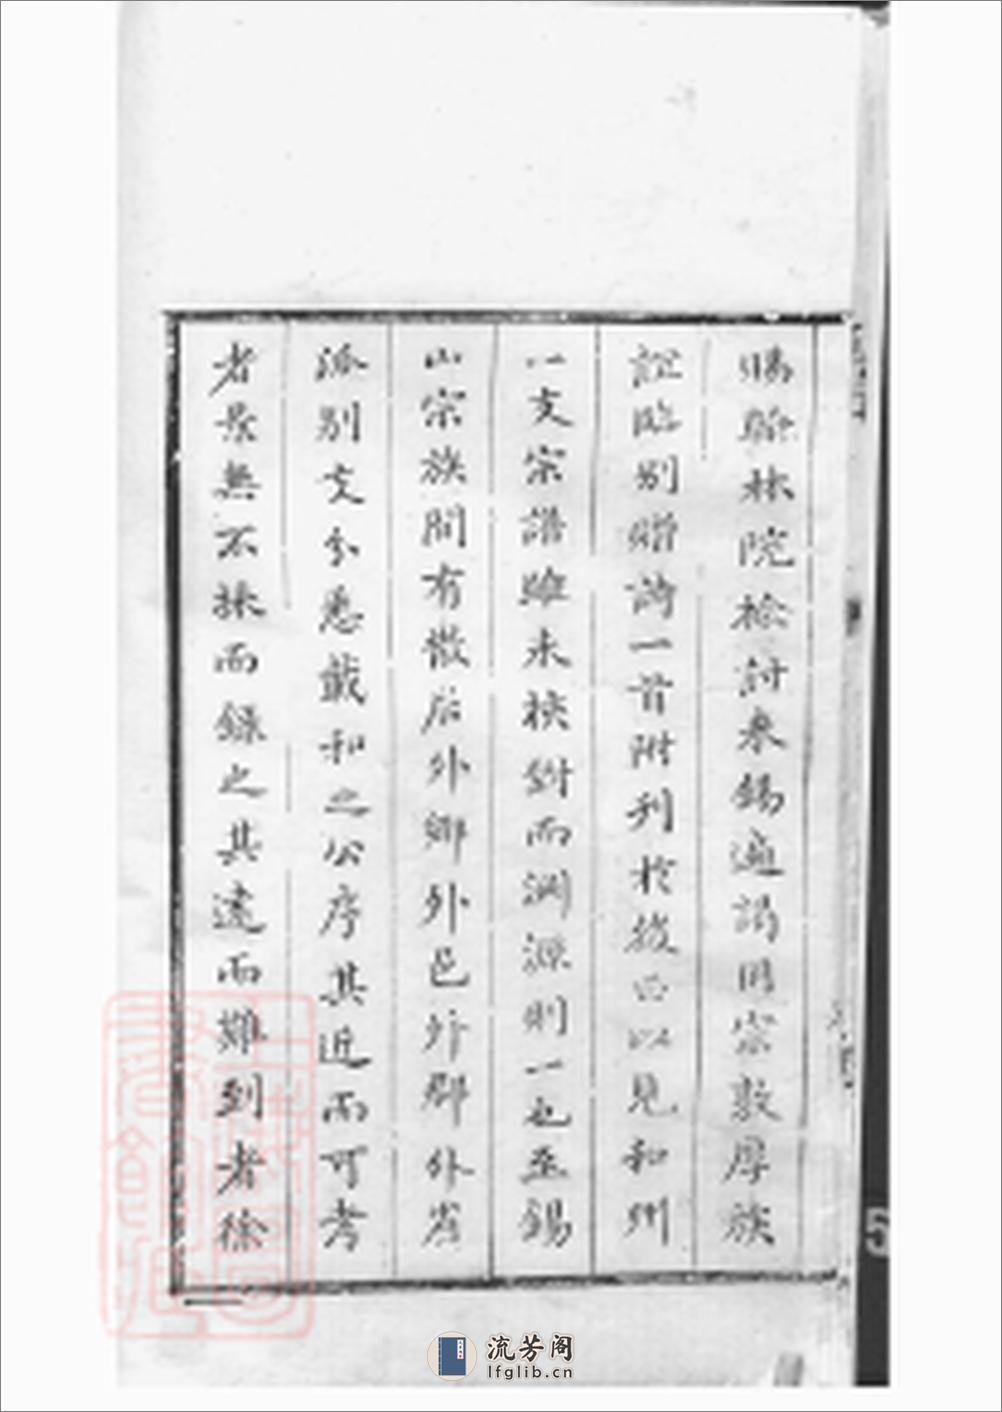 賜翰林院檢討來錫遍謁同宗敦厚族
誼臨別贈詩一首附刊於後亦以見和州
一支宗譜雖未校對而淵源則一也至錫
山宗族間有散居外鄉外邑外郡外省
派別支分悉載和之公序其近而可考
者最無不採而錄之其遠而難到者徐
流芳阁
lfglib.cn
5